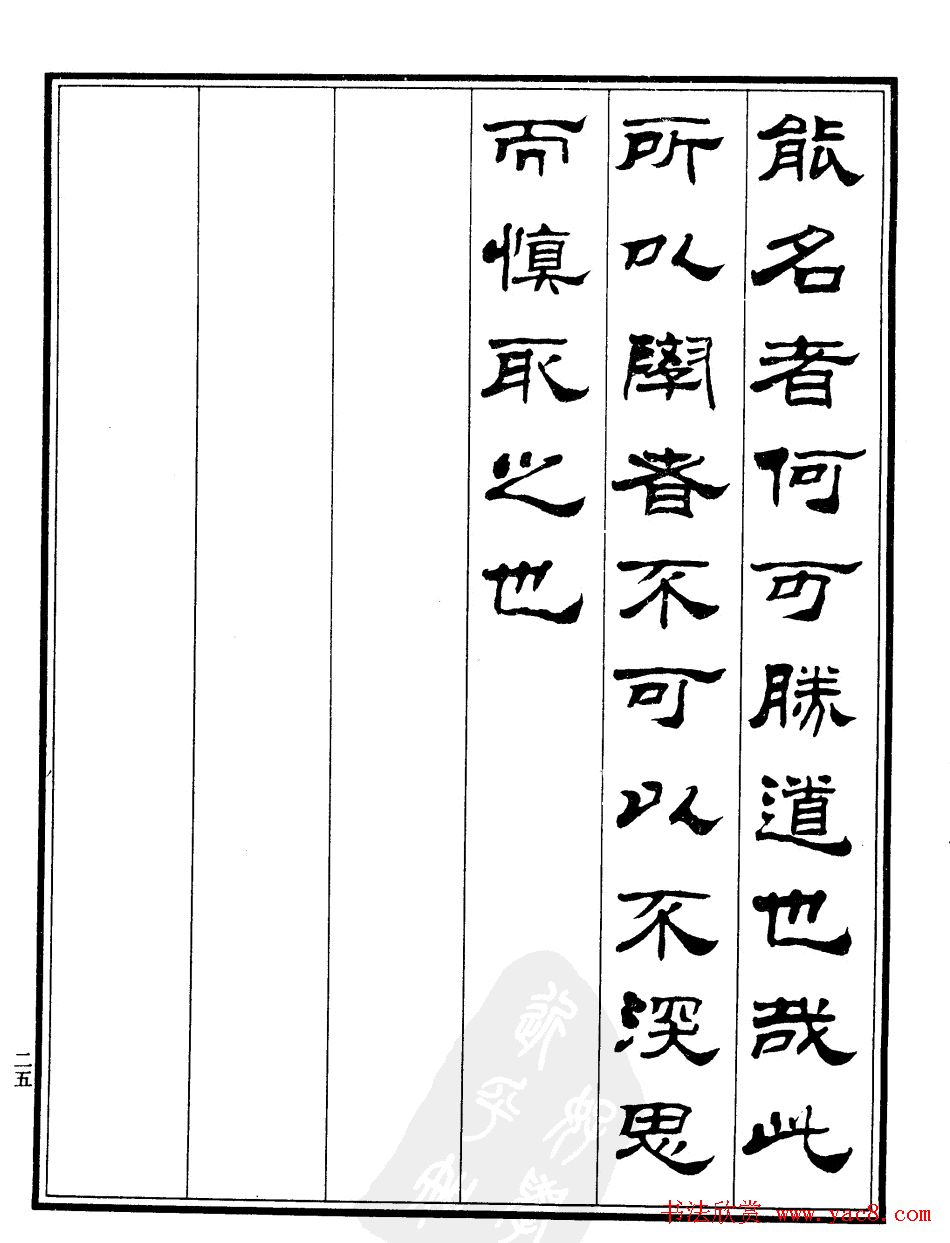 能名者何可勝道也哉此
所以學者不可以不深思
而慎取之也
二五
书法欣赏 www.yac8.com